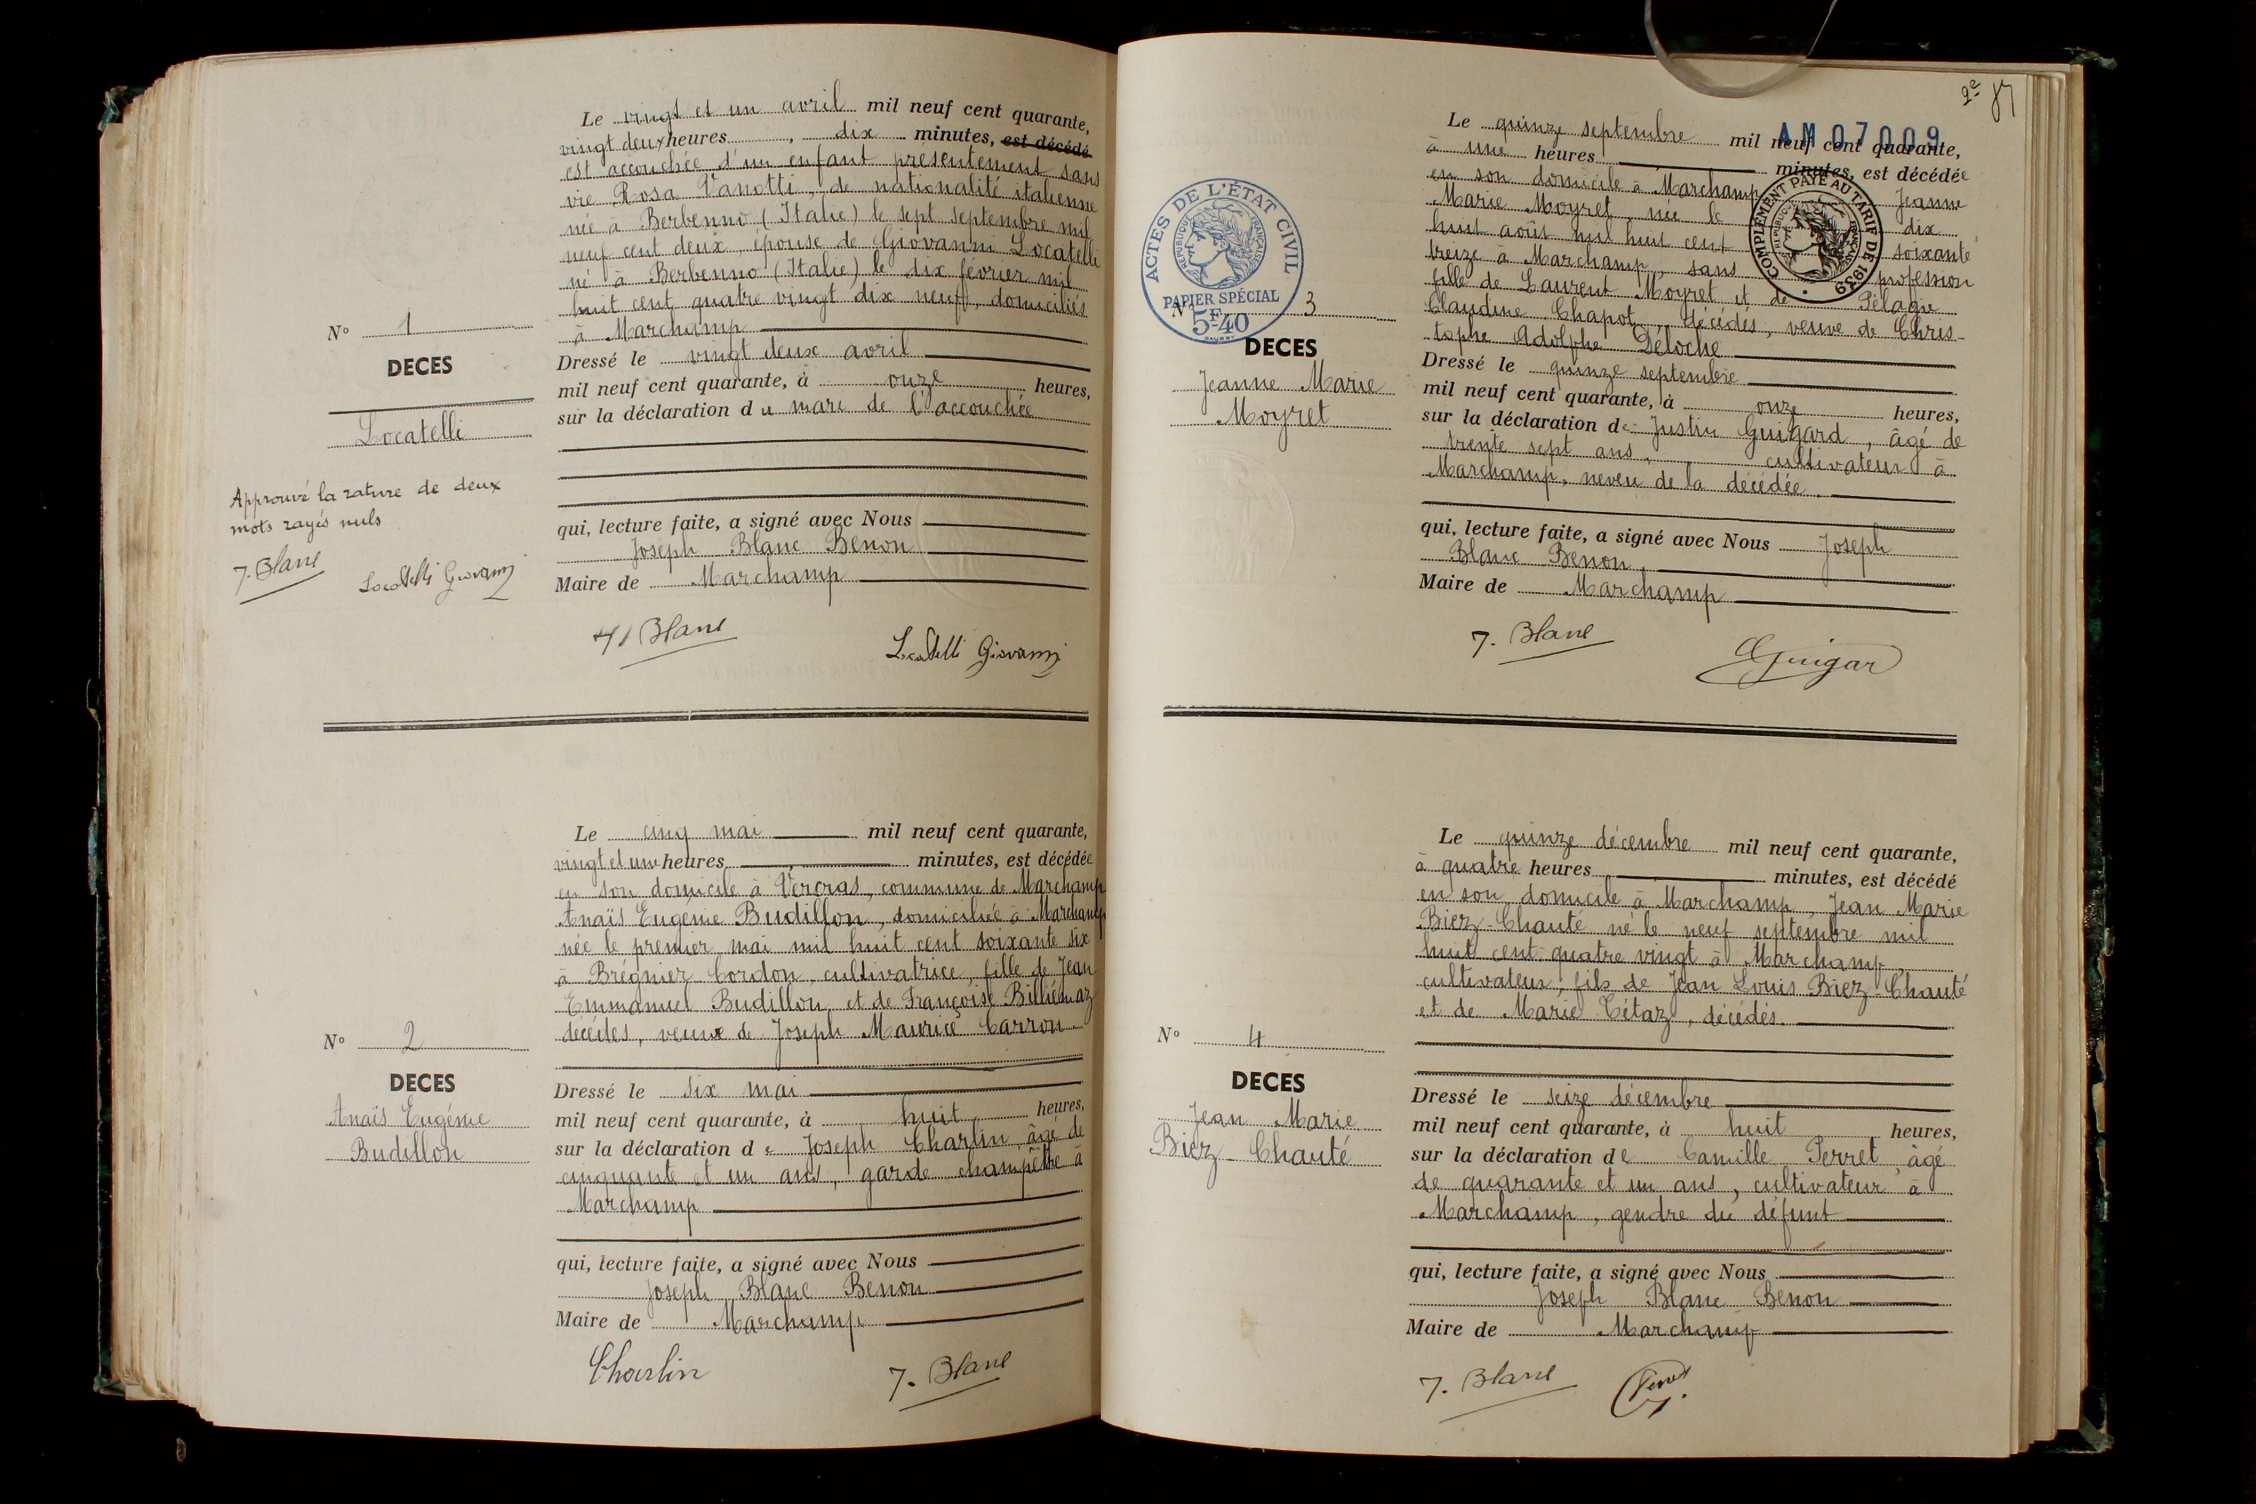 Le vingt et un avril mil neuf cent quarante,
vingt deux heures, dix minutes, est décédé
est accouchée d'un enfant présentement sans
vie Rosa Vanotti, de nationalité italienne
née à Berbenno (Italie) le sept septembre mil
neuf cent deux, épouse de Giovanni Locatelli
né à Berbenno (Italie) le dix février mil
huit cent quatre vingt dix neuf, domiciliés
à Marchamp
N° 1
DECES
Locatelli
Dressé le vingt deux avril
mil neuf cent quarante, à onze heures,
sur la déclaration du mari de l'accouchée
Approuvé la rature de deux
mots rayés nuls
J. Blanc
Locatelli Giovanni
qui, lecture faite, a signé avec Nous
Joseph Blanc Benon
Maire de Marchamp
J. Blanc
Locatelli Giovanni
Le cinq mai mil neuf cent quarante,
vingt et une heures minutes, est décédée
en son domicile à Vercras, commune de Marchamp
Anaïs Eugénie Budillon, domiciliée à Marchamp
née le premier mai mil huit cent soixante six
à Brégnier Cordon, cultivatrice, fille de Jean
Emmanuel Budillon et de Françoise Billiémaz
décédés, veuve de Joseph Maurice Carron
N° 2
DECES
Anaïs Eugénie
Budillon
Dressé le six mai
mil neuf cent quarante, à huit heures,
sur la déclaration de Joseph Charlin, âgé de
cinquante et un ans, garde champêtre à
Marchamp
qui, lecture faite, a signé avec Nous
Joseph Blanc Benon
Maire de Marchamp
Charlin
J. Blanc
AM 07009
ACTES DE L'ÉTAT CIVIL
RÉPUBLIQUE FRANÇAISE
PAPIER SPÉCIAL
5F.40
COMPLÉMENT PAYÉ AU TARIF DE 1939
RÉPUBLIQUE FRANÇAISE
Le quinze septembre mil neuf cent quarante,
à une heures minutes, est décédée
en son domicile à Marchamp Jeanne
Marie Moyret, née le dix
huit août mil huit cent soixante
treize à Marchamp, sans profession
fille de Laurent Moyret et de Pélagie
Claudine Chapot, décédés, veuve de Chris-
tophe Adolphe Déloche
N° 3
DECES
Jeanne Marie
Moyret
Dressé le quinze septembre
mil neuf cent quarante, à onze heures,
sur la déclaration de Justin Guigard, âgé de
trente sept ans, cultivateur à
Marchamp, neveu de la décédée.
qui, lecture faite, a signé avec Nous Joseph
Blanc Benon,
Maire de Marchamp
J. Blanc
Guigar
Le quinze décembre mil neuf cent quarante,
à quatre heures minutes, est décédé
en son domicile à Marchamp, Jean Marie
Biez-Chauté né le neuf septembre mil
huit cent quatre vingt à Marchamp,
cultivateur, fils de Jean Louis Biez-Chauté
et de Marie Tétaz, décédés.
N° 4
DECES
Jean Marie
Biez-Chauté
Dressé le seize décembre
mil neuf cent quarante, à huit heures,
sur la déclaration de Camille Perret, âgé
de quarante et un ans, cultivateur à
Marchamp, gendre du défunt
qui, lecture faite, a signé avec Nous
Joseph Blanc Benon
Maire de Marchamp
J. Blanc